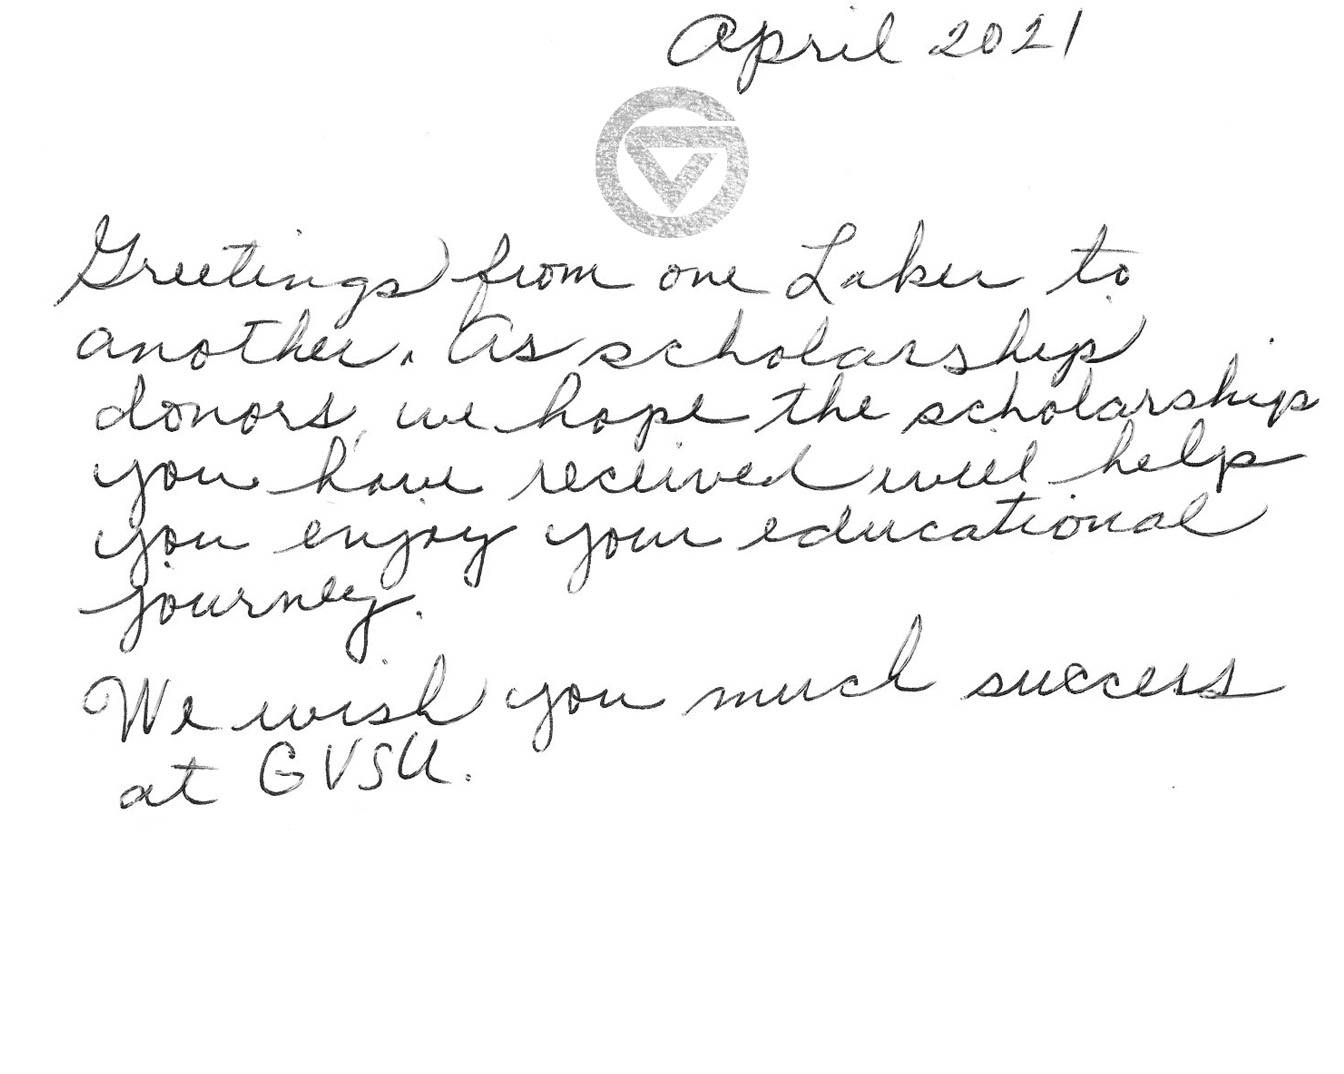 April 2021
Greetings from one Laker to
another. As scholarship
donors, we hope the scholarship
you have received will help
you enjoy your educational
journey.
We wish you much success
at GVSU.